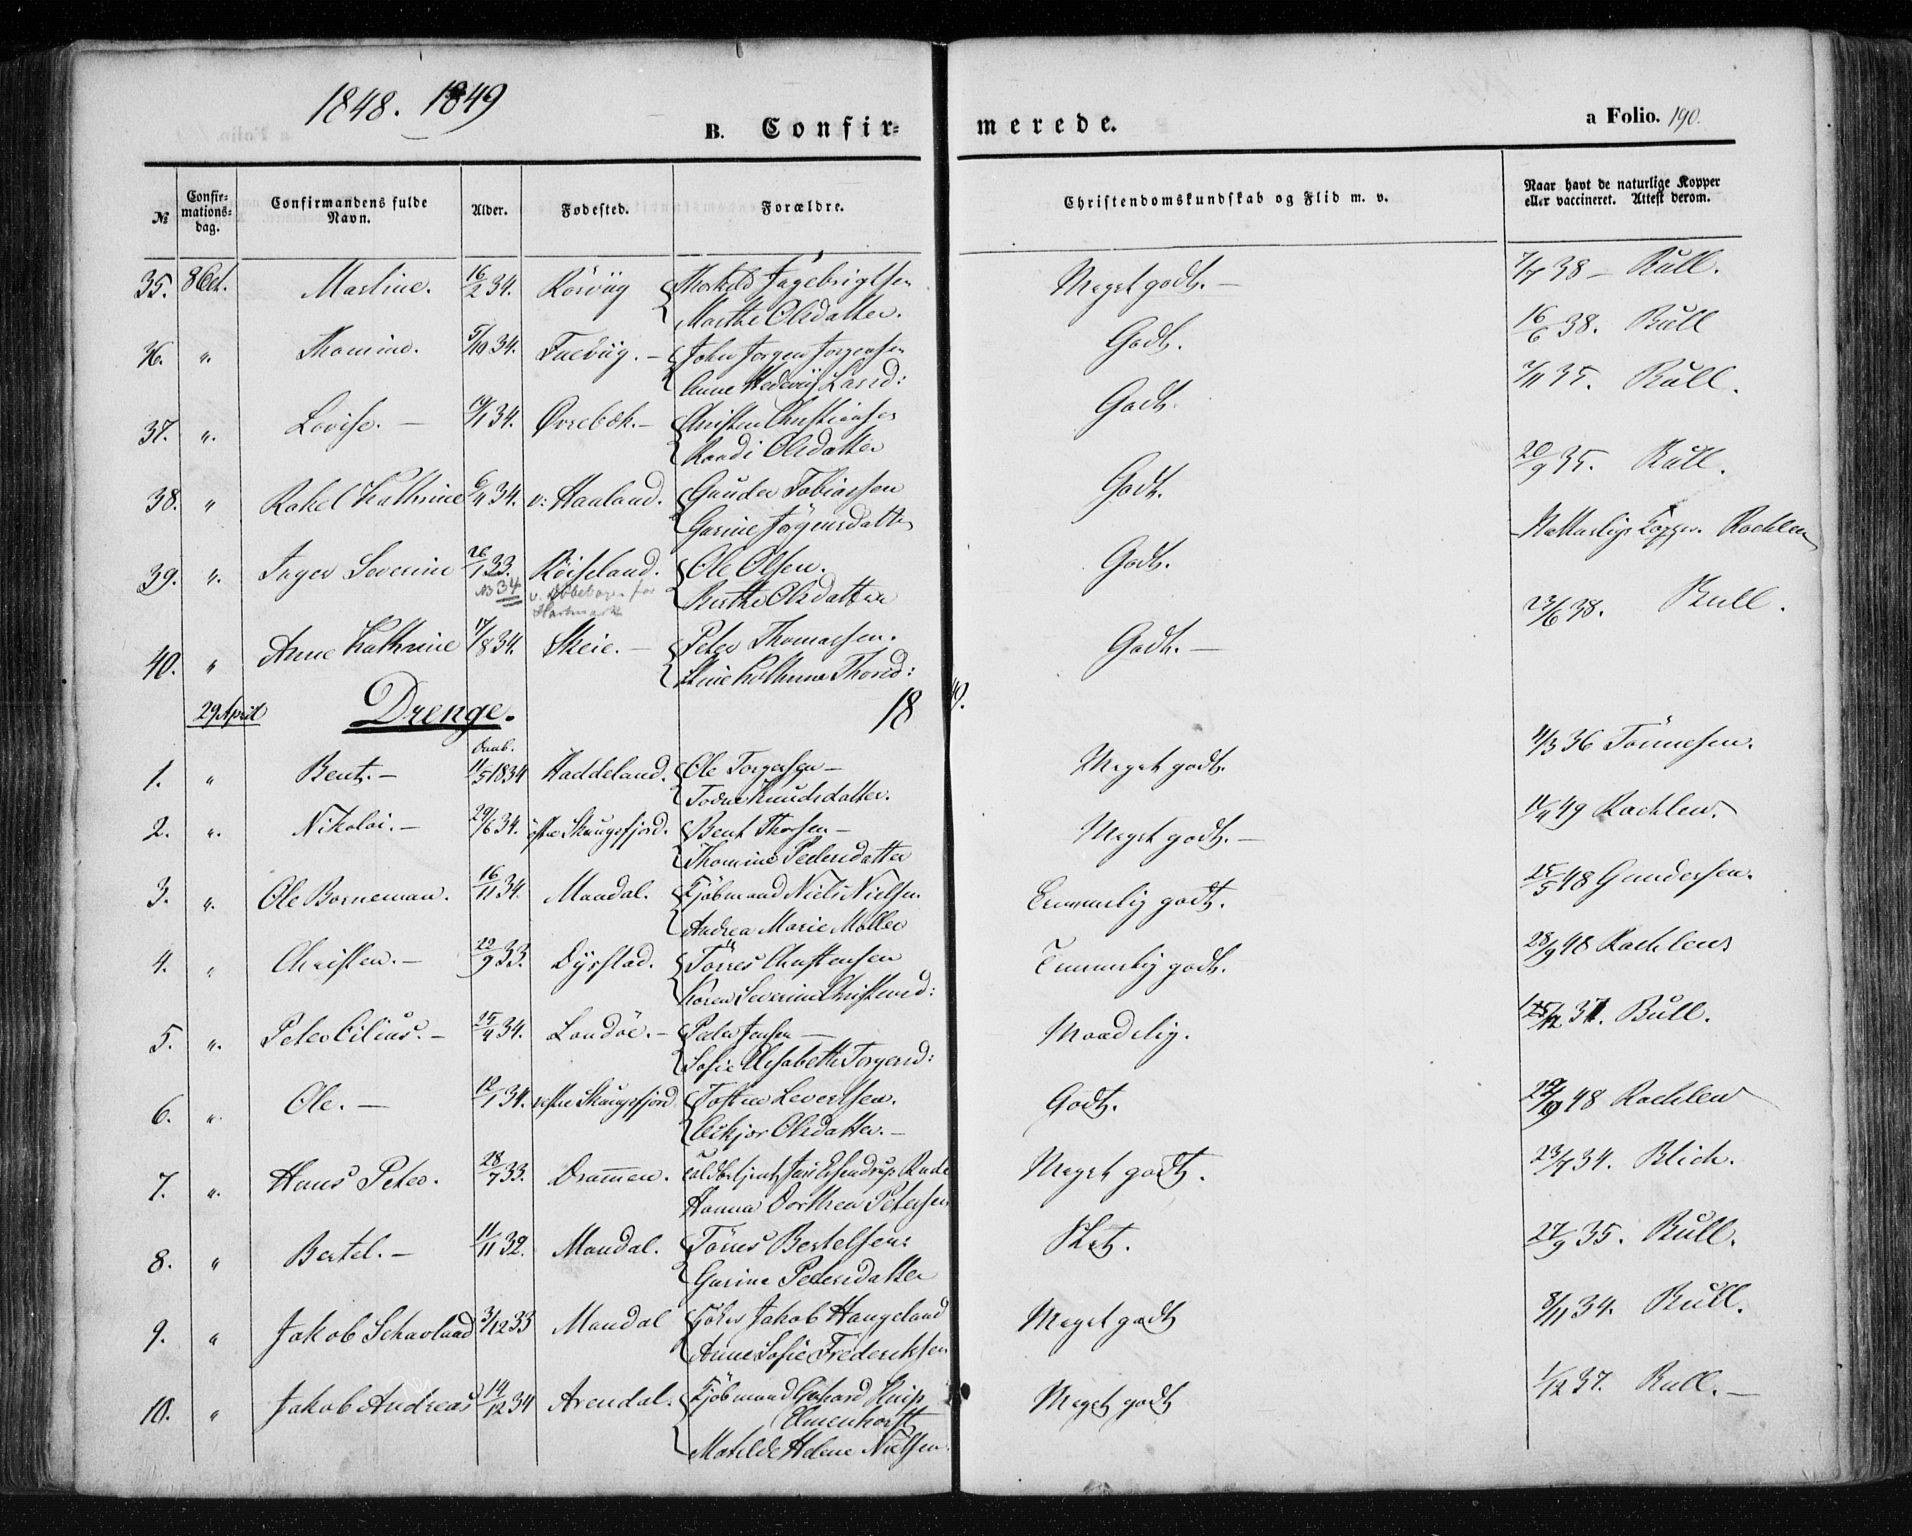 1848. 1849
B. Confir- merede. a Folio. 190.
№ Confirmations-dag. Confirmandens fulde Navn. Alder. Fødested. Forældre. Christendomskundskab og Flid m. v. Naar havt de naturlige Kopper eller vaccineret. Attest derom.
35. 8 Oct. Martine. 16/2 34. Meget godt. — 7/7 38 — Bull.
Marthe Olsdatter.
36. " Thomine. 5/10 34. John Jørgen Jørgensen Godt. 16/6 38. Bull
37. " Lovise. — Øvrebøk. — Christen Christensen Godt. 7/11 35. Bull.
Randi Olsdatter
38. " Rakel Kathrine 6/4 34. v: Haaland. Gunder Tobiassen Godt. 20/9 35. Bull.
Gurine Jørgensdatter
39. " Inger Severine 26/1 33. Røiseland. Ole Olsen. Godt. Naturlige Kopper. Rachlew
NB 34 Berthe Olsdatter
40. " Anne Kathrine 17/8 34. Skeie. — Peter Thomassen. Godt. — 23/6 38. Bull.
Stine Kathrine Thorsd:
29 April Drenge. 1849.
Daab.
1. " Bent. — 11/5 1834 Haddeland. Ole Torgersen — Meget godt. 11/3 36 Tönnesen.
Todne Knudsdatter.
2. " Nikolai. — 29/6 34. østre Skaugsfjord. Bent Thorsen — Meget godt. — 11/4 49 Rachlew.
Thomine Pedersdatter
3. " Ole Borneman. 16/11 34. Mandal. Kjøbmand Niels Nielsen Temmelig godt. 25/5 48 Gundersen.
Andrea Marie Møller
4. " Christen. — 22/9 33. Dyrstad. Törres Christensen Temmelig godt. 28/9 48 Rachlew
Karen Severine Christensd:
5. " Peter Cilius. — 25/4 34. Landøe. — Peder Jensen — Maadelig. Bull.
Sofie Elisabeth Torgersd:
6. " Ole. — 12/1 34. vestre Skaugsfjord Tosten Levertsen. Godt. 48 Rachlew
Olsdatter. —
7. " Hans Peter. 28/7 33. Drammen. Meget godt. 23/7 34. Blich.
Hanna Dorthea Petersen
8. " Bertel. — 11/11 32. Mandal. Törres Bertelsen Slet. 27/9 35. Bull.
Gurine Pedersdatter
9. " Jakob Schavland 3/12 33 Mandal Jakob Haugeland Meget godt 8/11 34. Bull.
Anne Sofie Frederiksen
10. " Jakob Andreas 14/12 34 Arendal. Kjøbmand Gerhard Meget godt 1/12 37. Bull. —
Elmenhorst
Matilde Helene Nielsen